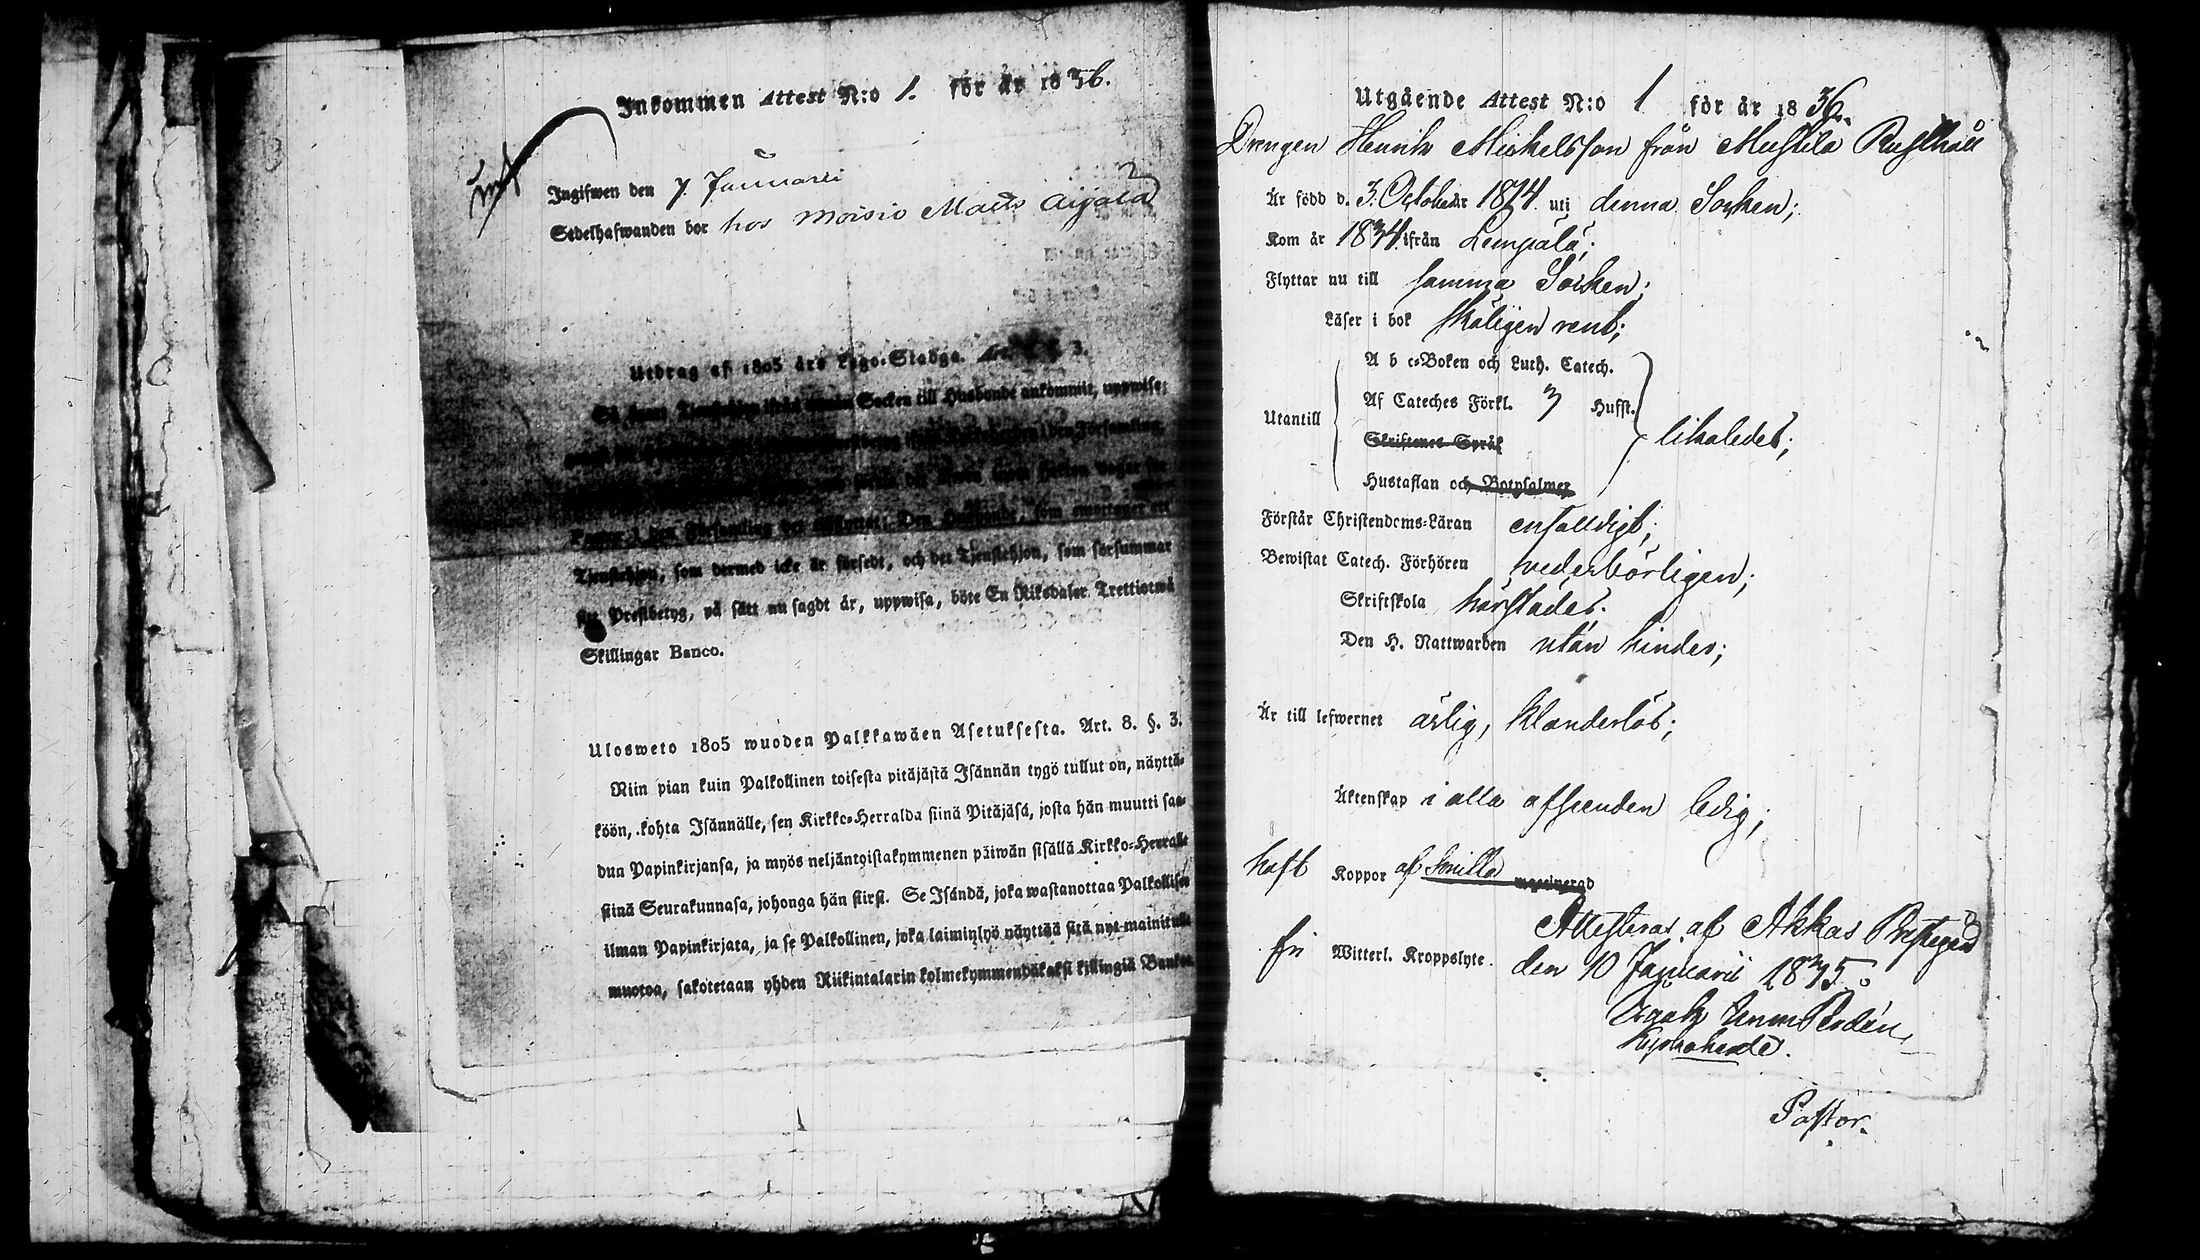 Inkommen Attest N:o 1. för år 1836.
Ingifwen den 7 Januarii
Sedelhafwanden bor hos Moisio Matts Aijälä
Utdrag af 1805 års Lego-Stadga. Art. §. 3.
Så snart Tjenstehjon ifrån annan Socken till Husbonde ankommit, uppwise;
i den Församling,
Pastor i den Församling der inflyttat. Den Husbonde, som emottager ett
Tjenstehjon, som dermed icke är försedt, och det Tjenstehjon, som försummar
Prestbetyg, på sätt nu sagdt är, uppwisa, böte En Riksdaler Trettiotwå
Skillingar Banco.
Ulosweto 1805 wuoden Palkkawäen Asetuksesta. Art. 8. §. 3.
Niin pian kuin Palkollinen toisesta pitäjästä Isännän tygö tullut on, näyttä-
köön, kohta Isännälle, sen Kirkko-Herralda siinä Pitäjäsä, josta hän muutti saa-
dun Papinkirjansa, ja myös neljäntoistakymmenen päiwän sisällä Kirkko-Herralle
siinä Seurakunnasa, johonga hän siirsi. Se Isändä, joka wastanottaa Palkollisen
ilman Papinkirjata, ja se Palkollinen, joka laiminlyö näyttää sitä nyt mainitulla
muotoa, sakotetaan yhden Riikintalarin kolmekymmendäkaksi killingiä Bankos
Utgående Attest N:o 1 för år 1836.
Drengen Henrik Michelsson från Mustila Rusthåll
Är född d. 3. October 1814 uti denna Socken;
Kom år 1834 ifrån Lempälä;
Flyttar nu till samma Socken;
Läser i bok skäligen rent;
A b c-Boken och Luth. Catech.
Af Cateches Förkl. 3 Hufst.
Utantill likaledes;
Skriftenes Språk
Hustaflan och Botpsalmer
Förstår Christendoms-Läran enfaldigt;
Bewistat Catech. Förhören wederbörligen;
Skriftskola härstädes.
Den H. Nattwarden utan hinder;
Är till lefwernet ärlig, klanderlös;
Äktenskap i alla afseenden ledig;
haft Koppor af Smitta vaccinerad
Attesteras af Akkas Prestgård
fri Witterl. Kroppslyte. den 10 Januarii 1835.
Kyrkoherde.
Pastor.